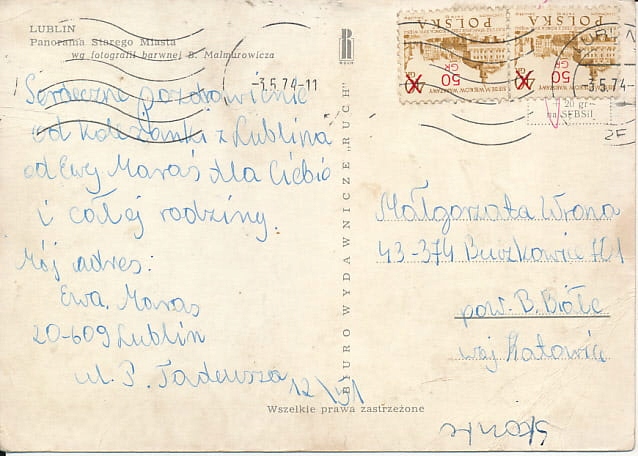 LUBLIN
Panorama Starego Miasta
wg fotografii barwnej B. Malmurowicza
RUCH
-3.5.74-11
Serdeczne pozdrowienie
od koleżanki z Lublina
od Ewy Maraś dla Ciebie
i całej rodziny.
Mój adres:
Ewa Maraś
20-609 Lublin
ul. P. Tadeusza 12/51
BIURO WYDAWNICZE „RUCH"
POLSKA
50 GR
SIEDEM WIEKÓW WARSZAWY
POLSKA
50 GR
SIEDEM WIEKÓW WARSZAWY
-3.5.74-
20 gr
na SFBSiI
Małgorzata Wrona
43-374 Buczkowice 701
pow. B. Biała
woj Katowice
Wszelkie prawa zastrzeżone